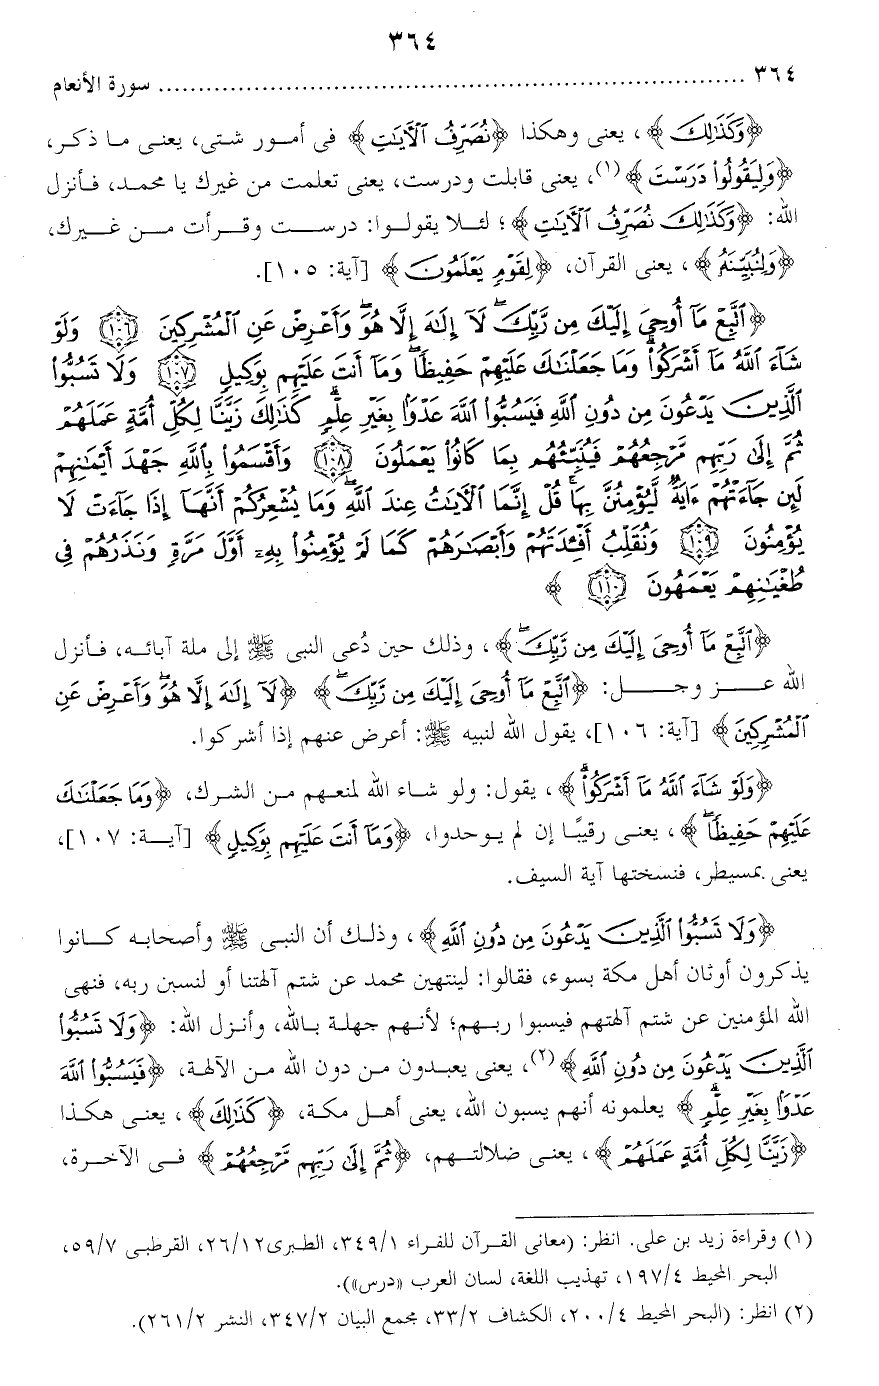 ٣٦٤
٣٦٤ ........................................................ سورة الأنعام
﴿وَكَذَٰلِكَ﴾، يعنى وهكذا ﴿نُصَرِّفُ ٱلْآيَٰتِ﴾ فى أمور شتى، يعنى ما ذكر،
﴿وَلِيَقُولُوا۟ دَرَسْتَ﴾(١)، يعنى قابلت ودرست، يعنى تعلمت من غيرك يا محمد، فأنزل
الله: ﴿وَكَذَٰلِكَ نُصَرِّفُ ٱلْآيَٰتِ﴾؛ لئلا يقولوا: درست وقرأت من غيرك،
﴿وَلِنُبَيِّنَهُۥ﴾، يعنى القرآن، ﴿لِقَوْمٍ يَعْلَمُونَ﴾ [آية: ١٠٥].
﴿ٱتَّبِعْ مَآ أُوحِىَ إِلَيْكَ مِن رَّبِّكَ ۖ لَآ إِلَٰهَ إِلَّا هُوَ ۖ وَأَعْرِضْ عَنِ ٱلْمُشْرِكِينَ ١٠٦ وَلَوْ
شَآءَ ٱللَّهُ مَآ أَشْرَكُوا۟ ۗ وَمَا جَعَلْنَٰكَ عَلَيْهِمْ حَفِيظًا ۖ وَمَآ أَنتَ عَلَيْهِم بِوَكِيلٍ ١٠٧ وَلَا تَسُبُّوا۟
ٱلَّذِينَ يَدْعُونَ مِن دُونِ ٱللَّهِ فَيَسُبُّوا۟ ٱللَّهَ عَدْوًۢا بِغَيْرِ عِلْمٍ ۗ كَذَٰلِكَ زَيَّنَّا لِكُلِّ أُمَّةٍ عَمَلَهُمْ
ثُمَّ إِلَىٰ رَبِّهِم مَّرْجِعُهُمْ فَيُنَبِّئُهُم بِمَا كَانُوا۟ يَعْمَلُونَ ١٠٨ وَأَقْسَمُوا۟ بِٱللَّهِ جَهْدَ أَيْمَٰنِهِمْ
لَئِن جَآءَتْهُمْ ءَايَةٌ لَّيُؤْمِنُنَّ بِهَا ۚ قُلْ إِنَّمَا ٱلْآيَٰتُ عِندَ ٱللَّهِ ۖ وَمَا يُشْعِرُكُمْ أَنَّهَآ إِذَا جَآءَتْ لَا
يُؤْمِنُونَ ١٠٩ وَنُقَلِّبُ أَفْـِٔدَتَهُمْ وَأَبْصَٰرَهُمْ كَمَا لَمْ يُؤْمِنُوا۟ بِهِۦٓ أَوَّلَ مَرَّةٍ وَنَذَرُهُمْ فِى
طُغْيَٰنِهِمْ يَعْمَهُونَ ١١٠﴾
﴿ٱتَّبِعْ مَآ أُوحِىَ إِلَيْكَ مِن رَّبِّكَ ۖ﴾، وذلك حين دُعى النبى ﷺ إلى ملة آبائه، فأنزل
الله عز وجل: ﴿ٱتَّبِعْ مَآ أُوحِىَ إِلَيْكَ مِن رَّبِّكَ ۖ﴾ ﴿لَآ إِلَٰهَ إِلَّا هُوَ ۖ وَأَعْرِضْ عَنِ
ٱلْمُشْرِكِينَ﴾ [آية: ١٠٦]، يقول الله لنبيه ﷺ: أعرض عنهم إذا أشركوا.
﴿وَلَوْ شَآءَ ٱللَّهُ مَآ أَشْرَكُوا۟ ۗ﴾، يقول: ولو شاء الله لمنعهم من الشرك، ﴿وَمَا جَعَلْنَٰكَ
عَلَيْهِمْ حَفِيظًا ۖ﴾، يعنى رقيبًا إن لم يوحدوا، ﴿وَمَآ أَنتَ عَلَيْهِم بِوَكِيلٍ﴾ [آية: ١٠٧]،
يعنى بمسيطر، فنسختها آية السيف.
﴿وَلَا تَسُبُّوا۟ ٱلَّذِينَ يَدْعُونَ مِن دُونِ ٱللَّهِ﴾، وذلك أن النبى ﷺ وأصحابه كانوا
يذكرون أوثان أهل مكة بسوء، فقالوا: لينتهين محمد عن شتم آلهتنا أو لنسبن ربه، فنهى
الله المؤمنين عن شتم آلهتهم فيسبوا ربهم؛ لأنهم جهلة بالله، وأنزل الله: ﴿وَلَا تَسُبُّوا۟
ٱلَّذِينَ يَدْعُونَ مِن دُونِ ٱللَّهِ﴾(٢)، يعنى يعبدون من دون الله من الآلهة، ﴿فَيَسُبُّوا۟ ٱللَّهَ
عَدْوًۢا بِغَيْرِ عِلْمٍ ۗ﴾ يعلمونه أنهم يسبون الله، يعنى أهل مكة، ﴿كَذَٰلِكَ﴾، يعنى هكذا
﴿زَيَّنَّا لِكُلِّ أُمَّةٍ عَمَلَهُمْ﴾، يعنى ضلالتهم، ﴿ثُمَّ إِلَىٰ رَبِّهِم مَّرْجِعُهُمْ﴾ فى الآخرة،
(١) وقراءة زيد بن على. انظر: (معانى القرآن للفراء ٣٤٩/١، الطبرى٢٦/١٢، القرطبى ٥٩/٧،
البحر المحيط ١٩٧/٤، تهذيب اللغة، لسان العرب «درس»).
(٢) انظر: (البحر المحيط ٢٠٠/٤، الكشاف ٣٣/٢، مجمع البيان ٣٤٧/٢، النشر ٢٦١/٢).